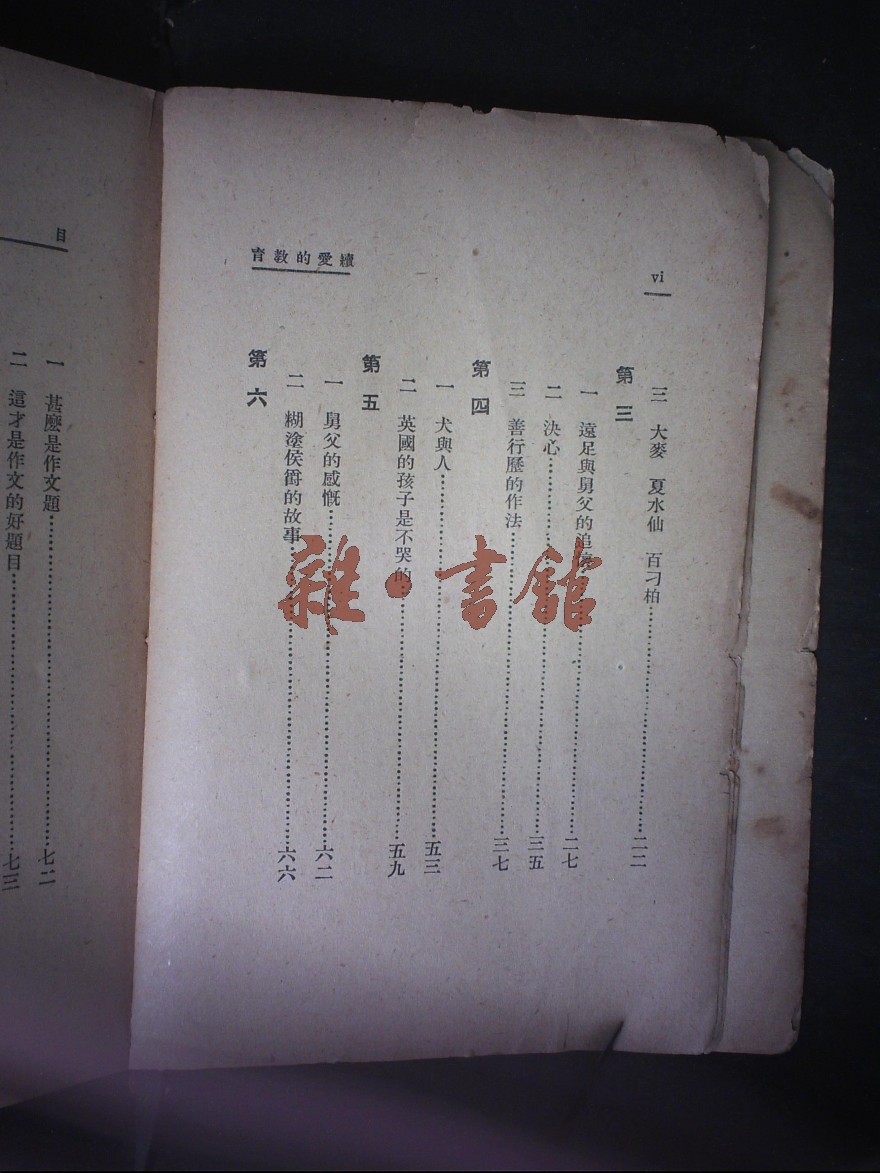 續愛的教育
vi
三 大麥 夏水仙 百刁柏……二二
第三
一 遠足與舅父的追……二七
二 決心……三五
三 善行歷的作法……三七
第四
一 犬與人……五三
二 英國的孩子是不哭的……五九
第五
一 舅父的感慨……六二
二 糊塗侯爵的故事……六六
第六
目
一 甚麼是作文題……七二
二 這才是作文的好題目……七三
雜·書館